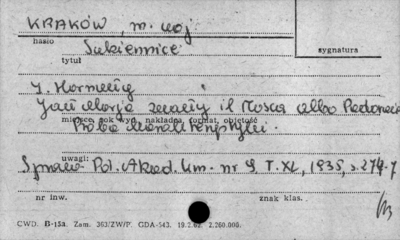 KRAKÓW, m. woj
hasło
Sukiennice
sygnatura
tytuł
J. Hornung
Jan Maria zwany il Mosca albo Padovano
miejsce, rok wyd. nakładca, format, objętość
Próba charakterystyki.
uwagi:
Sprawo. Pol. Akad. Um. nr 9, T. XL, 1935, s. 274-7
nr inw.
znak klas.
CWD. B-15a. Zam. 363/ZW/P. GDA-543. 19.2.62. 2.260.000.